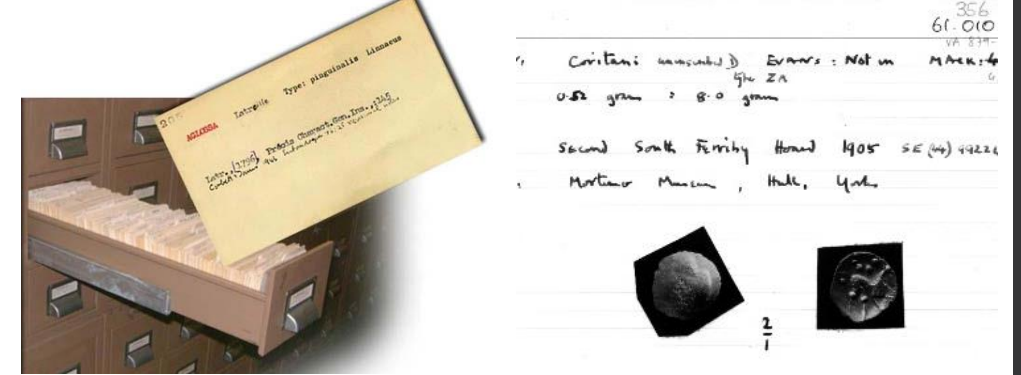 AGLOSSA Latreille Type: pinguinalis Linnaeus
Latr., [1796], Précis Charact.Gen.Ins.,:145
356
61.010
VA 839-
Coritani uninscribed EVANS: Not in MACK:
type ZA
0.52 gram : 8.0 grains
Second South Ferriby Hoard 1905 SE (44) 9922
Mortimer Museum, Hull, Yorks
2
1